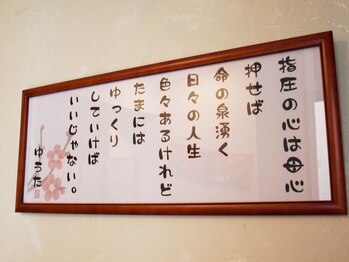 指圧の心は母心
押せば
命の泉湧く
日々の人生
色々あるけれど
たまには
ゆっくり
していけば
いいじゃない。
ゆうた